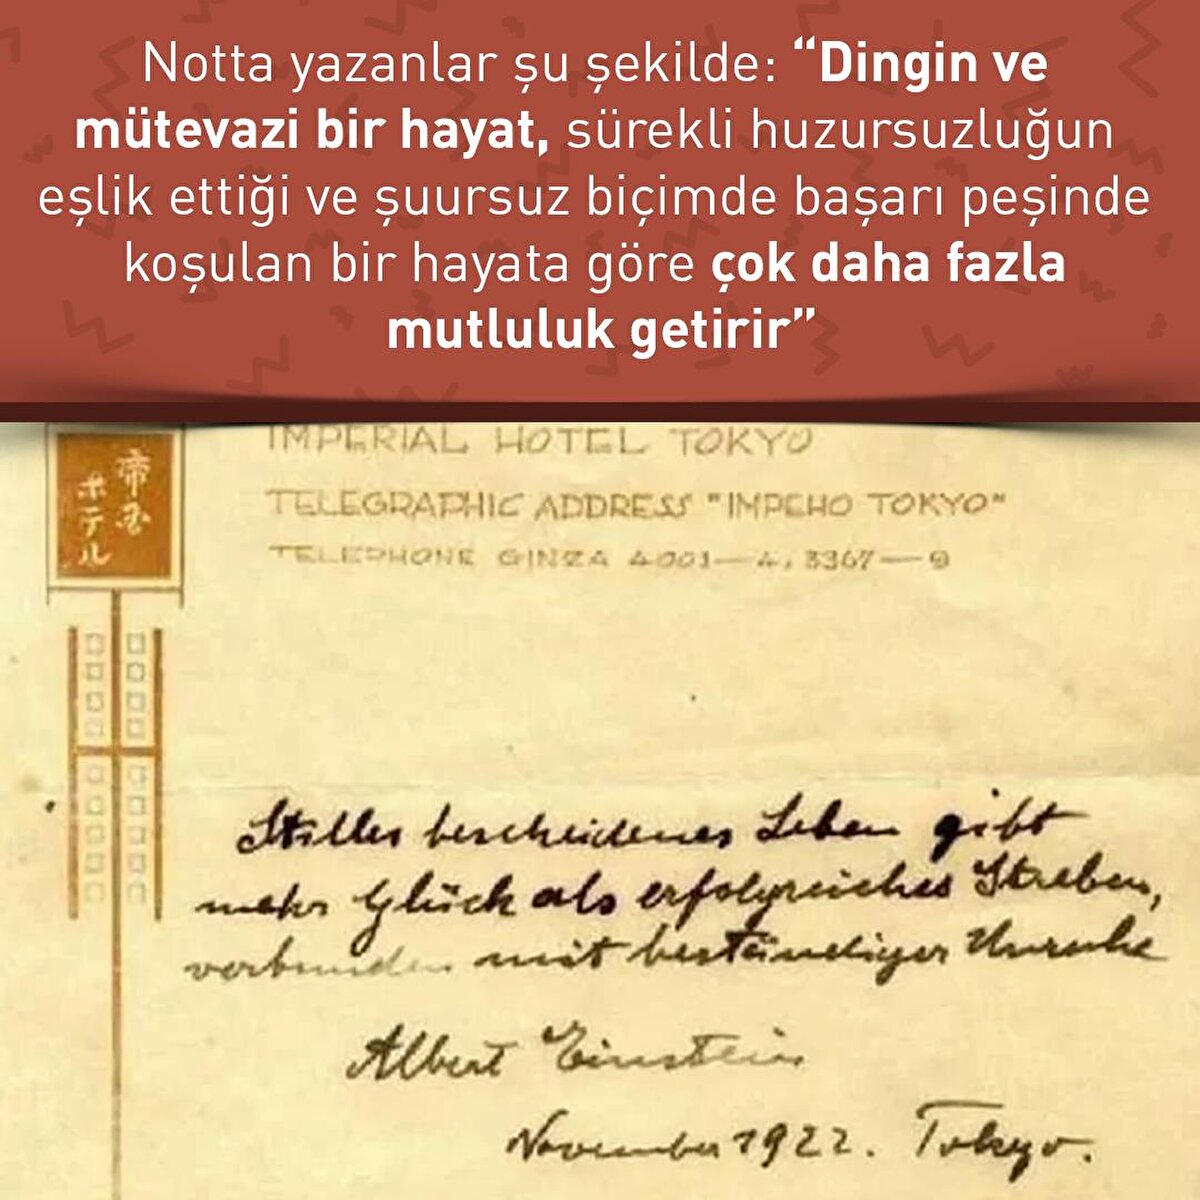 Notta yazanlar şu şekilde: “Dingin ve
mütevazi bir hayat, sürekli huzursuzluğun
eşlik ettiği ve şuursuz biçimde başarı peşinde
koşulan bir hayata göre çok daha fazla
mutluluk getirir”
IMPERIAL HOTEL TOKYO
帝国
ホテル
TELEGRAPHIC ADDRESS "IMPEHO TOKYO"
TELEPHONE GINZA 4001—4, 3367—9
Stilles bescheidenes Leben gibt
mehr Glück als erfolgreiches Streben,
verbunden mit beständiger Unruhe
Albert Einstein
November 1922. Tokyo.